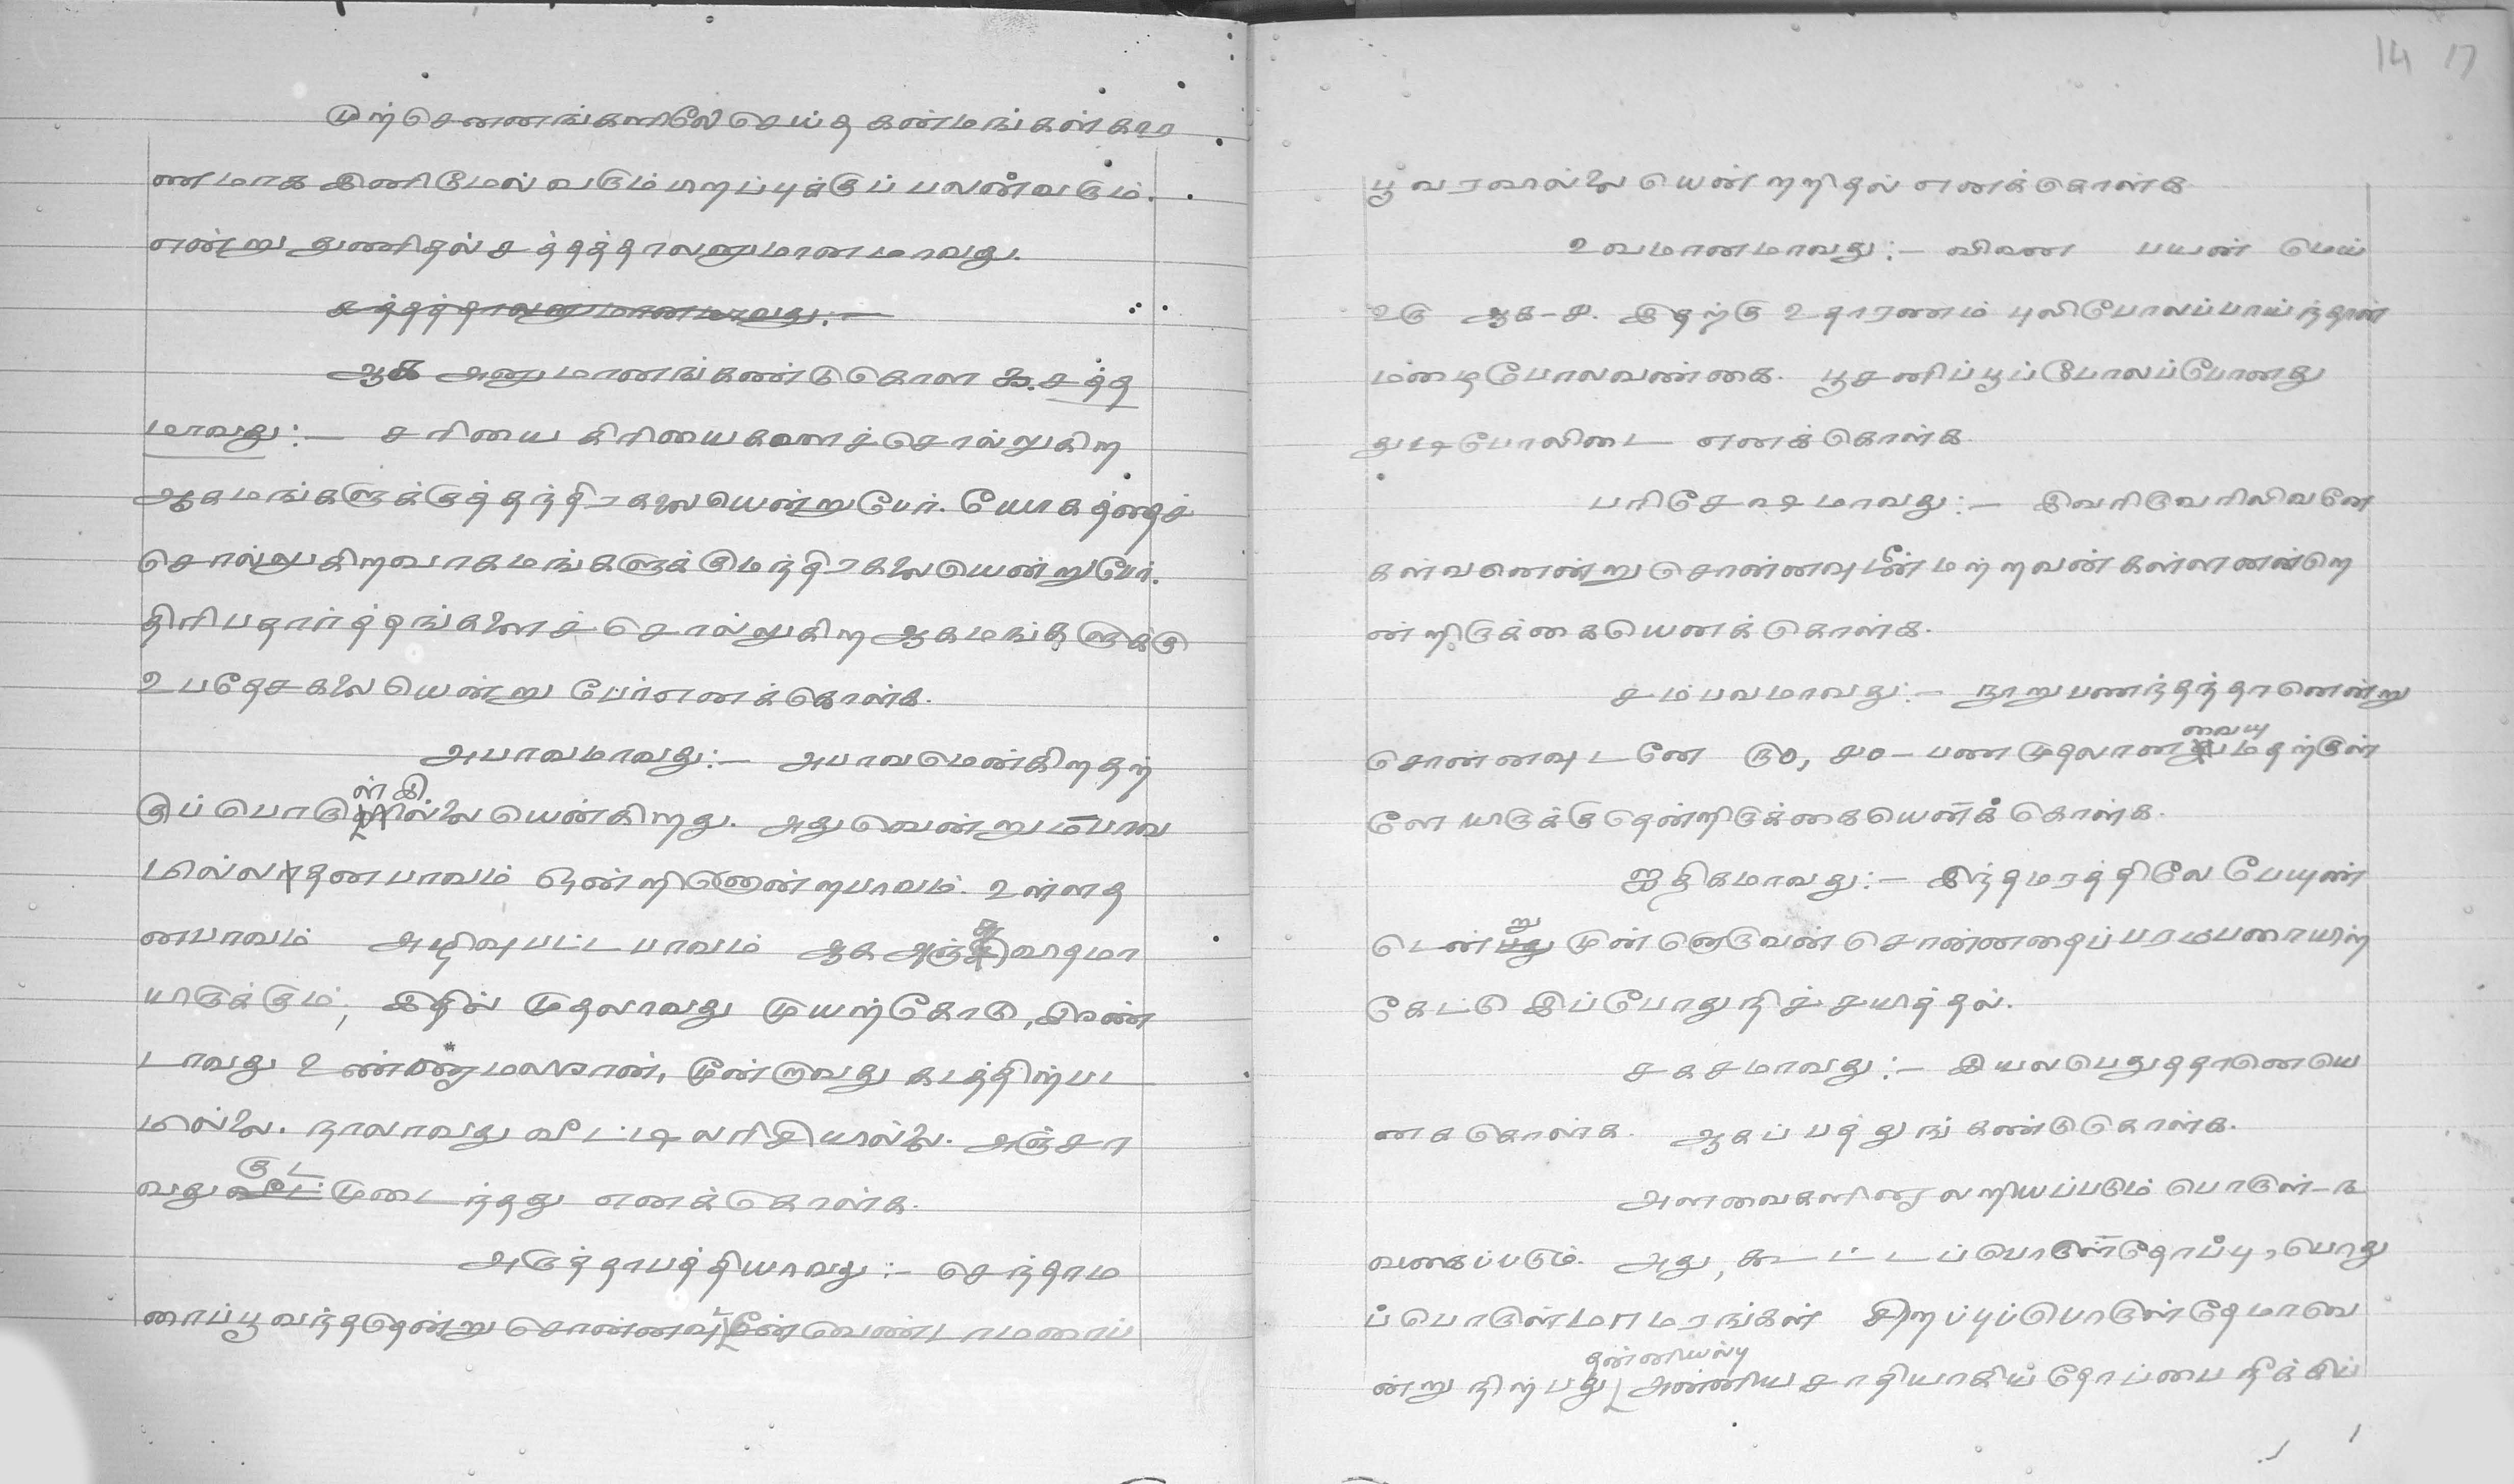 முற்செனனங்களிலே செய்த கன்மங்கள் கார
ணமாக இனிமேல் வரும் பிறப்புக்குப் பலன்வரும்.
என்று துணிதல் சத்தத்தாலனுமானமாவது.
சத்தத்தாலனுமானமாவது:—
ஆக அனுமானங்கண்டுகொள ௩. சத்த
மாவது:— சரியை கிரியைகளைச் சொல்லுகிற
ஆகமங்களுக்குத்தந்திரகலையென்று பேர். யோகத்தைச்
சொல்லுகிறவாகமங்களுக்கு மந்திரகலையென்றுபேர்.
திரிபதார்த்தங்களைச் சொல்லுகிற ஆகமங்களுக்கு
உபதேசகலை யென்று பேர்எனக்கொள்க.
அபாவமாவது:— அபாவமென்கிறதற்
ள் இ
குப்பொருளில்லை யென்கிறது. அதுவென்றுமபாவ
மில்லாதனபாவம் ஒன்றினொன்றபாவம். உள்ளத
னபாவம் அழிவுபட்டபாவம் ஆக அஞ்சு விதமா
யிருக்கும், இதில் முதலாவது முயற்கோடு, இரண்
டாவது உண்ணாமலரான், மூன்றாவது கடத்திற்பட
மில்லை. நாலாவது வீட்டிலரிசியில்லை. அஞ்சா
குட
வது வீட முடைந்தது எனக்கொள்க.
அருத்தாபத்தியாவது:— செந்தாம
ரைப்பூவந்ததென்று சொன்னவுடன் வெண்டாமரைப்
14 17
பூவரவில்லை யென்றறிதல் எனக்கொள்க
உவமானமாவது:— வினை பயன் மெய்
உரு ஆக-௪. இதற்கு உதாரணம் புலிபோலப்பாய்ந்தான்
மழைபோலவண்கை. பூசணிப்பூப்போலப்போனது
துடிபோலிடை எனக்கொள்க
பரிசேஷமாவது:— இவரிருவரிலிவனே
கள்வனென்று சொன்னவுடன் மற்றவன் கள்ளனன்றெ
ன்றிருக்கையெனக் கொள்க.
சம்பவமாவது:— நூறுபணந்தந்தானென்று
வையு
சொன்னவுடனே ௫௦, ௪௦-பணமுதலானவையுமதற்குள்
ளே யிருக்குதென்றிருக்கையெனக் கொள்க.
ஐதிகமாவது:— இந்தமரத்திலே பேயுண்
று
டென்று முன்னொருவன் சொன்னதைப் பரம்பரையிற்
கேட்டு இப்போது நிச்சயித்தல்.
சகசமாவது:— இயலபெதுத்தானெயெ
னக கொள்க. ஆகப் பத்துங் கண்டுகொள்க.
அளவைகளினாலறியப்படும் பொருள்-௩
வகைப்படும். அது, கூட்டப்பொருள்தோப்பு, பொது
ப்பொருள்மாமரங்கள் சிறப்புப்பொருள்தேமாவெ
தன்னியல்பு
ன்று நிற்பது அன்னியசாதியாகிய தோப்பை நீக்கிப்